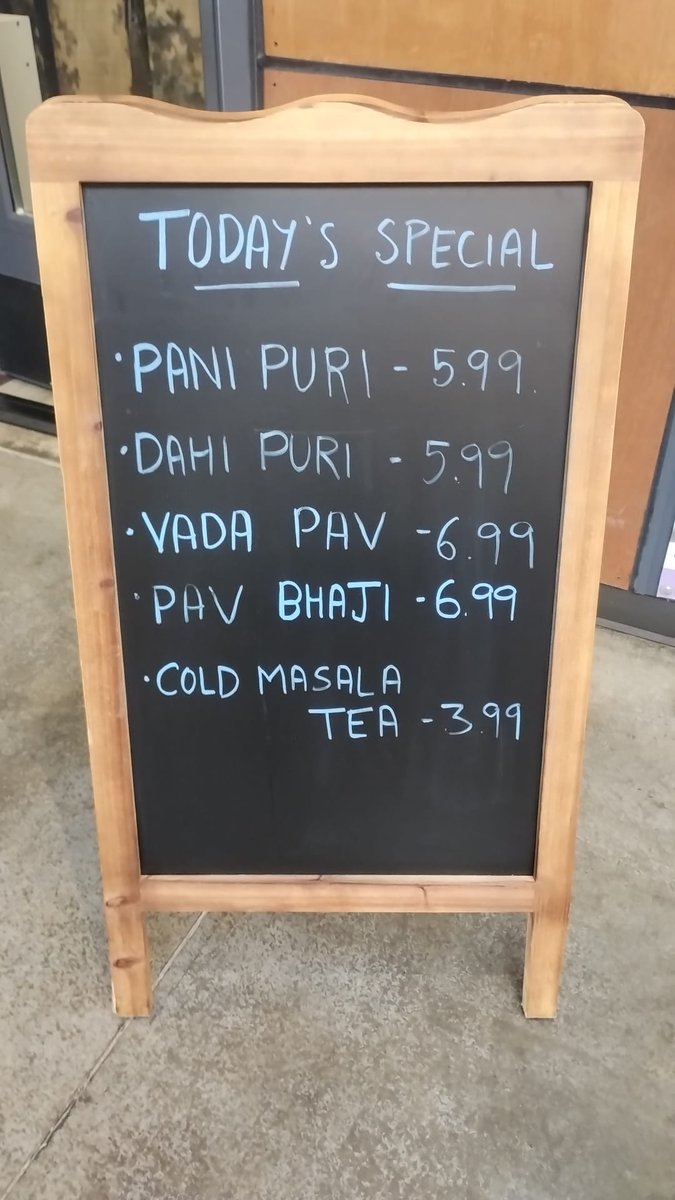 TODAY'S SPECIAL
• PANI PURI - 5.99.
• DAHI PURI - 5.99
• VADA PAV - 6.99
• PAV BHAJI - 6.99
• COLD MASALA
TEA - 3.99